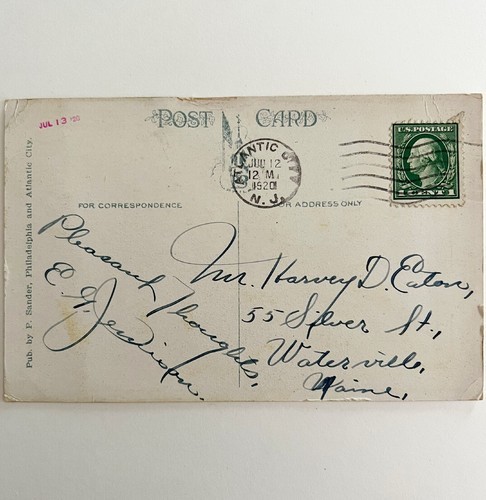 JUL 13 '20
POST CARD
ATLANTIC CITY
JUL 12
12 M
1920
N. J.
U.S. POSTAGE
1 CENT 1
FOR CORRESPONDENCE
FOR ADDRESS ONLY
Pub. by P. Sander, Philadelphia and Atlantic City.
Pleasant Thoughts,
E. G.
Mr. Harvey D. Eaton,
55 Silver St.,
Waterville,
Maine,